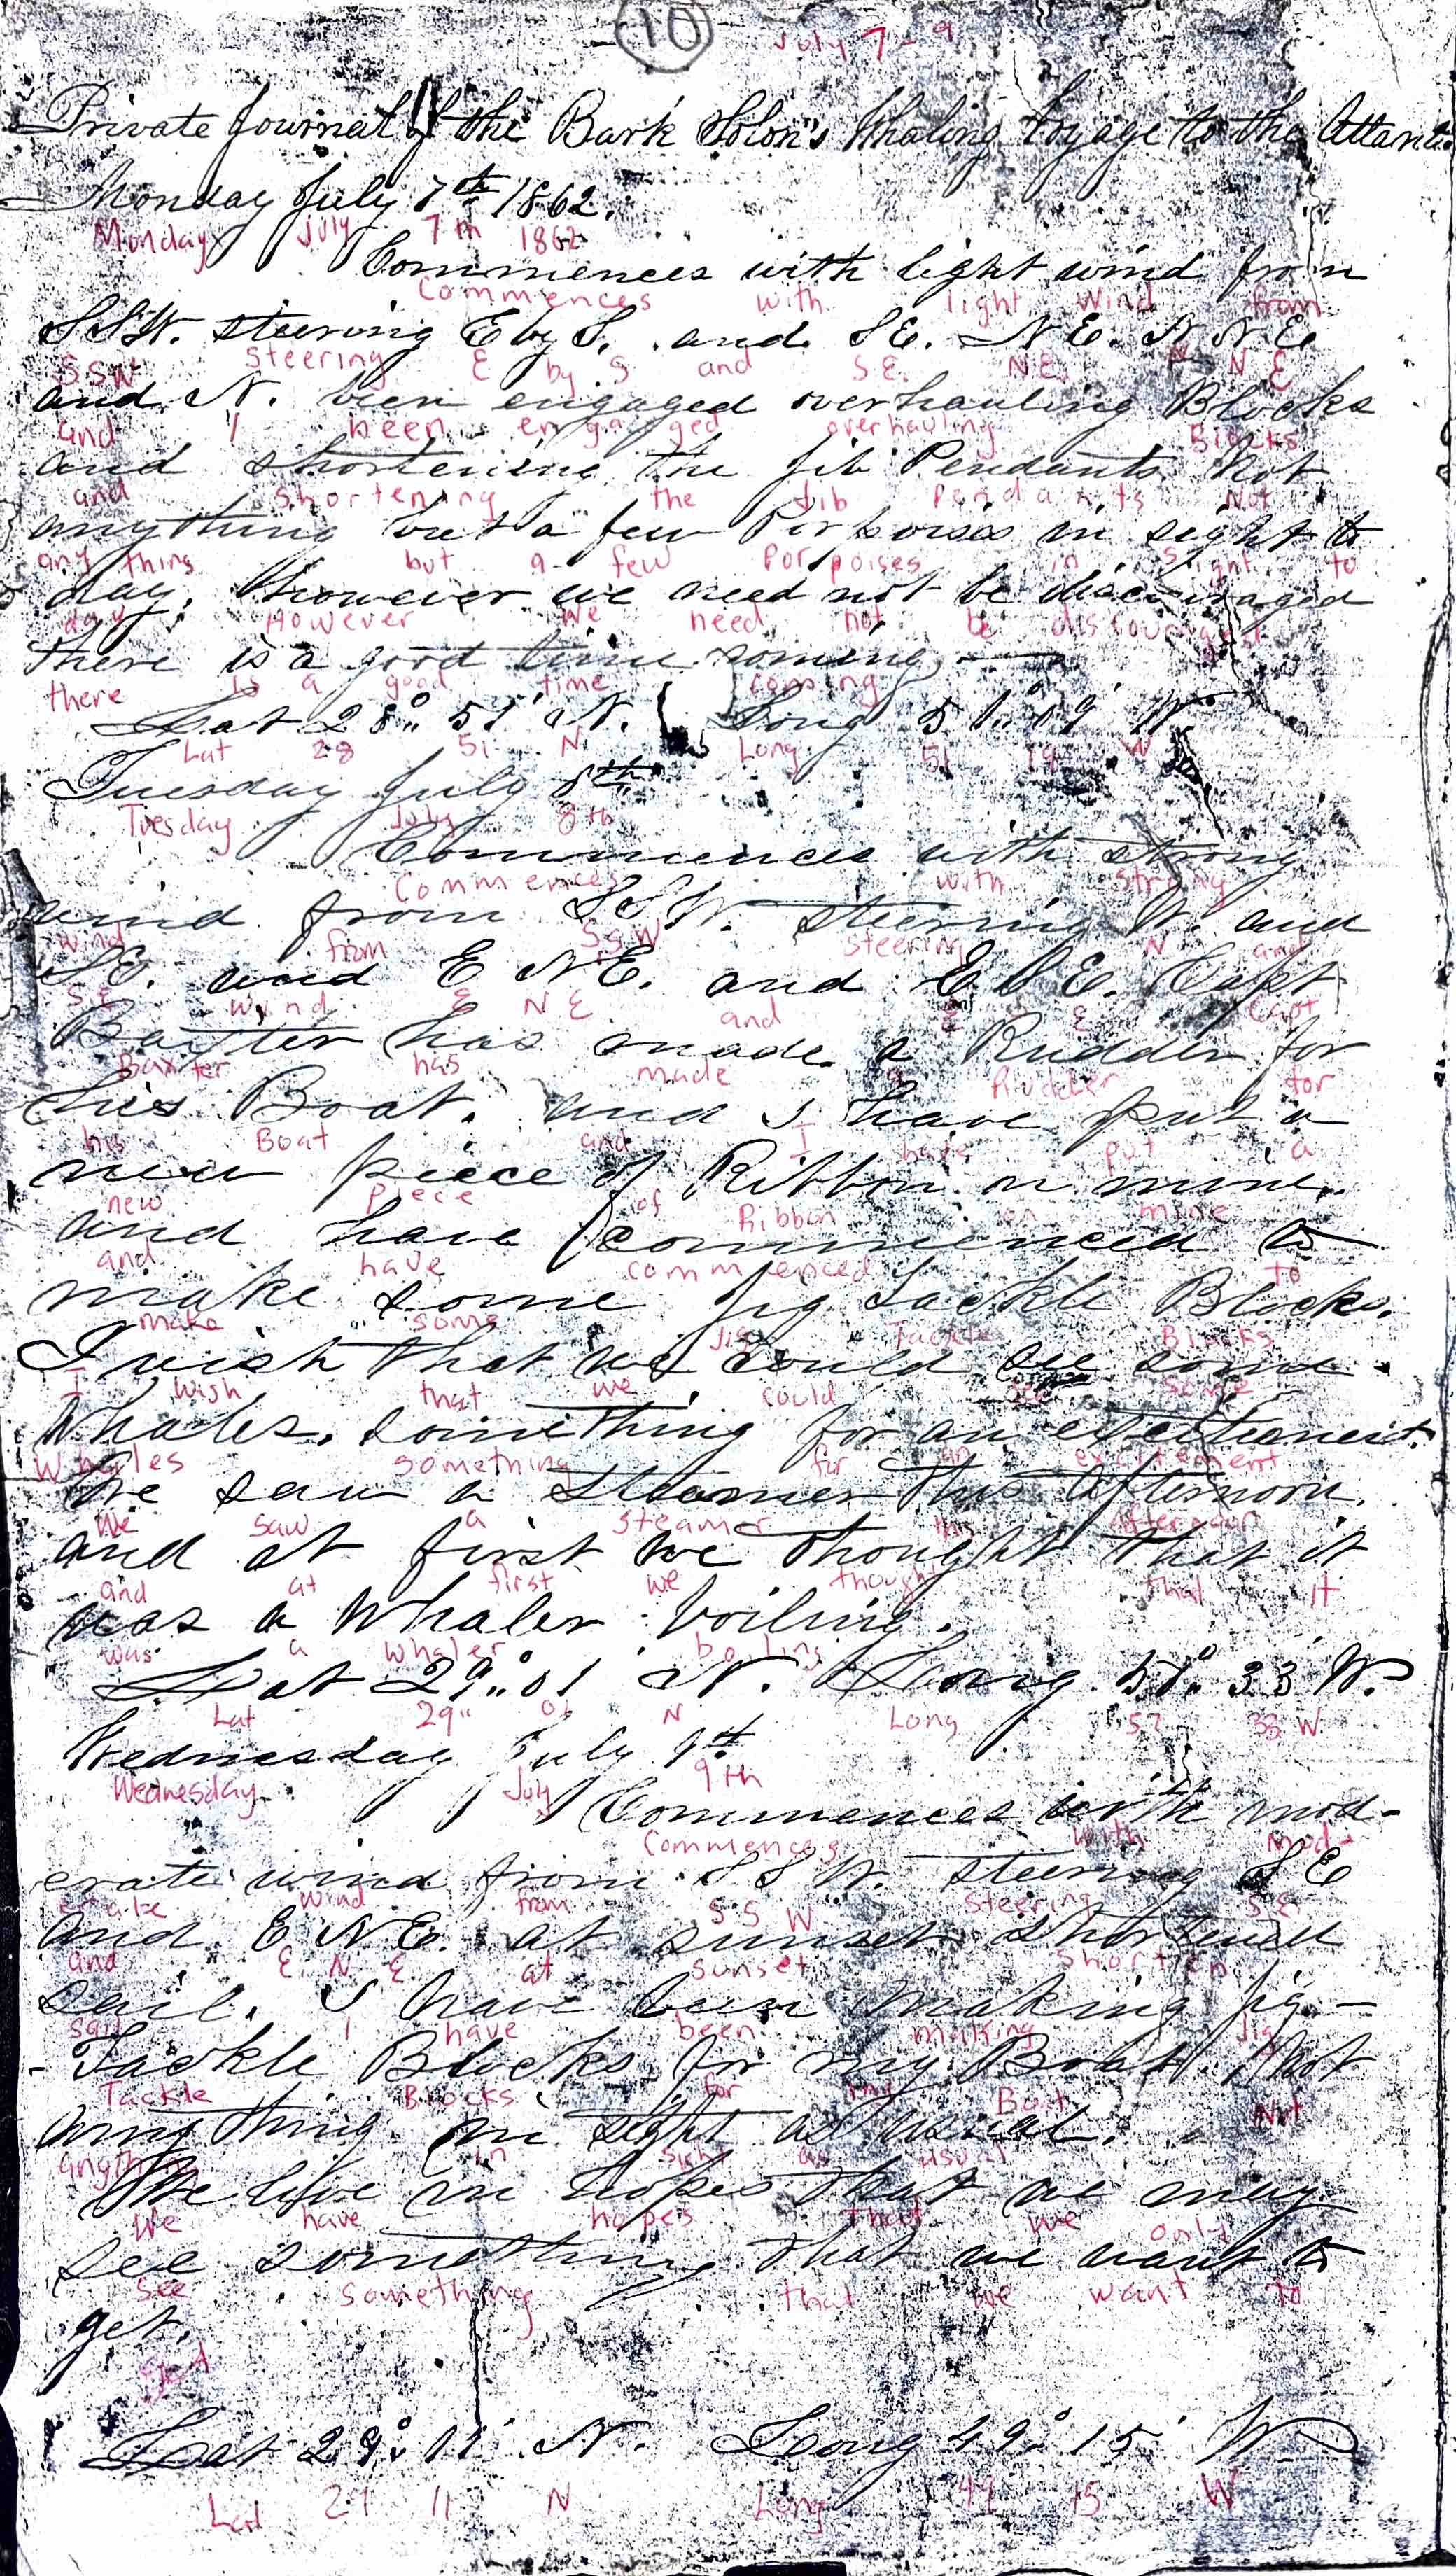 10
July 7-9
Private Journal of the Bark Solon's Whaling Voyage to the
Monday July 7th 1862.
Monday July 7th 1862
Commences with light wind from
Commences with light wind from
SSW. steering E by S. and SE. NE. N N E
SSW steering E by S and SE. NE. N N E
and N. been engaged overhauling Blocks
and been engaged overhauling Blocks
and shortening the Jib Pendants Not
and shortening the Jib Pendants Not
anything but a few Porpoises in sight to
any thing but a few Porpoises in sight to
day, However we need not be discouraged
day However we need not be discouraged
there is a good time coming.
there is a good time coming
Lat 28° 51' N. Long 51° 19' W
Lat 28 51 N Long 51 19 W
Tuesday July 8th
Tuesday July 8th
Commences with strong
Commences with strong
wind from SSW. steering N. and
wind from SSW steering N and
SE. and E NE. and E S E. Capt
SE wind E NE and E E Capt
Baxter has made a Rudder for
Baxter has made a Rudder for
his Boat. and I have put a
his Boat and I have put a
new piece of Ribbon on mine.
new piece of Ribbon on mine
and have commenced to
and have commenced to
make some Jig Tackle Blocks.
make some Jig Tackle Blocks
I wish that we could see some
I wish that we could see some
Whales, something for an excitement.
Whales something for an excitement
We saw a Steamer this Afternoon.
We saw a steamer this Afternoon
and at first we thought that it
and at first we thought that it
was a Whaler boiling.
was a Whaler boiling
Lat 29° 01' N. Long 33' W.
Lat 29 01 N Long 57 33 W
Wednesday July 9th
Wednesday July 9th
Commences with mod-
Commences with mod-
erate wind from SSW. steering SE
erate wind from SSW steering SE
and E NE. at sunset shortened
and E N E at sunset shorten
sail. I have been making Jig-
sail I have been making Jig
-Tackle Blocks for my Boat. Not
Tackle Blocks for my Boat Not
anything in sight as usual.
anything in sight as usual
We live in hopes that we may
We have hopes that we only
see something that we want to
see something that we want to
get.
get
Lat 29° 11' N. Long 49° 15' W
Lat 29 11 N Long 49 15 W